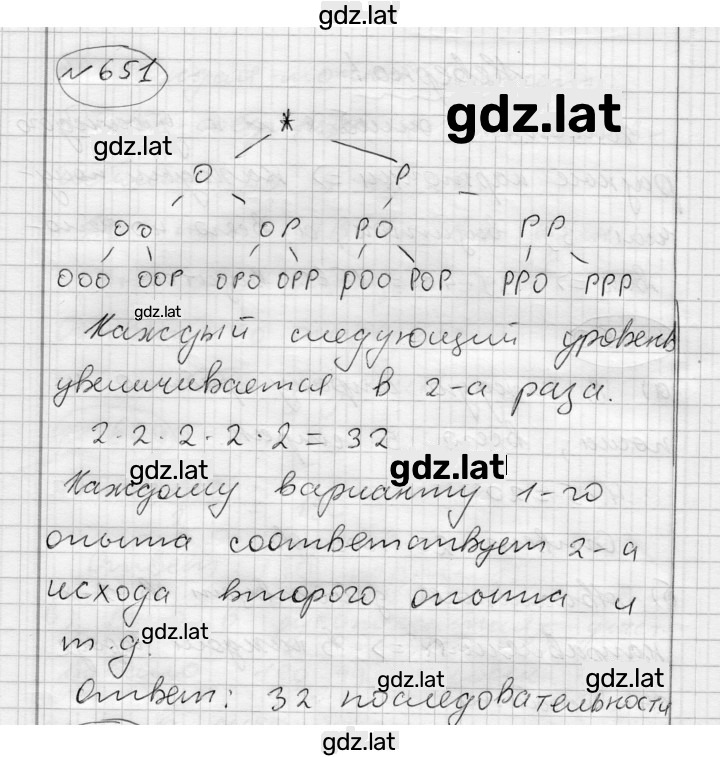 gdz.lat
№651
gdz.lat
*
gdz.lat
О Р
ОО ОР РО РР
ООО ООР ОРО ОРР РОО РОР РРО РРР
gdz.lat
Каждый следующий уровень
увеличивается в 2-а раза.
2·2·2·2·2=32
gdz.lat gdz.lat
Каждому варианту 1-го
опыта соответствует 2-а
исхода второго опыта и
т.д.
gdz.lat
gdz.lat gdz.lat
Ответ: 32 последовательности
gdz.lat